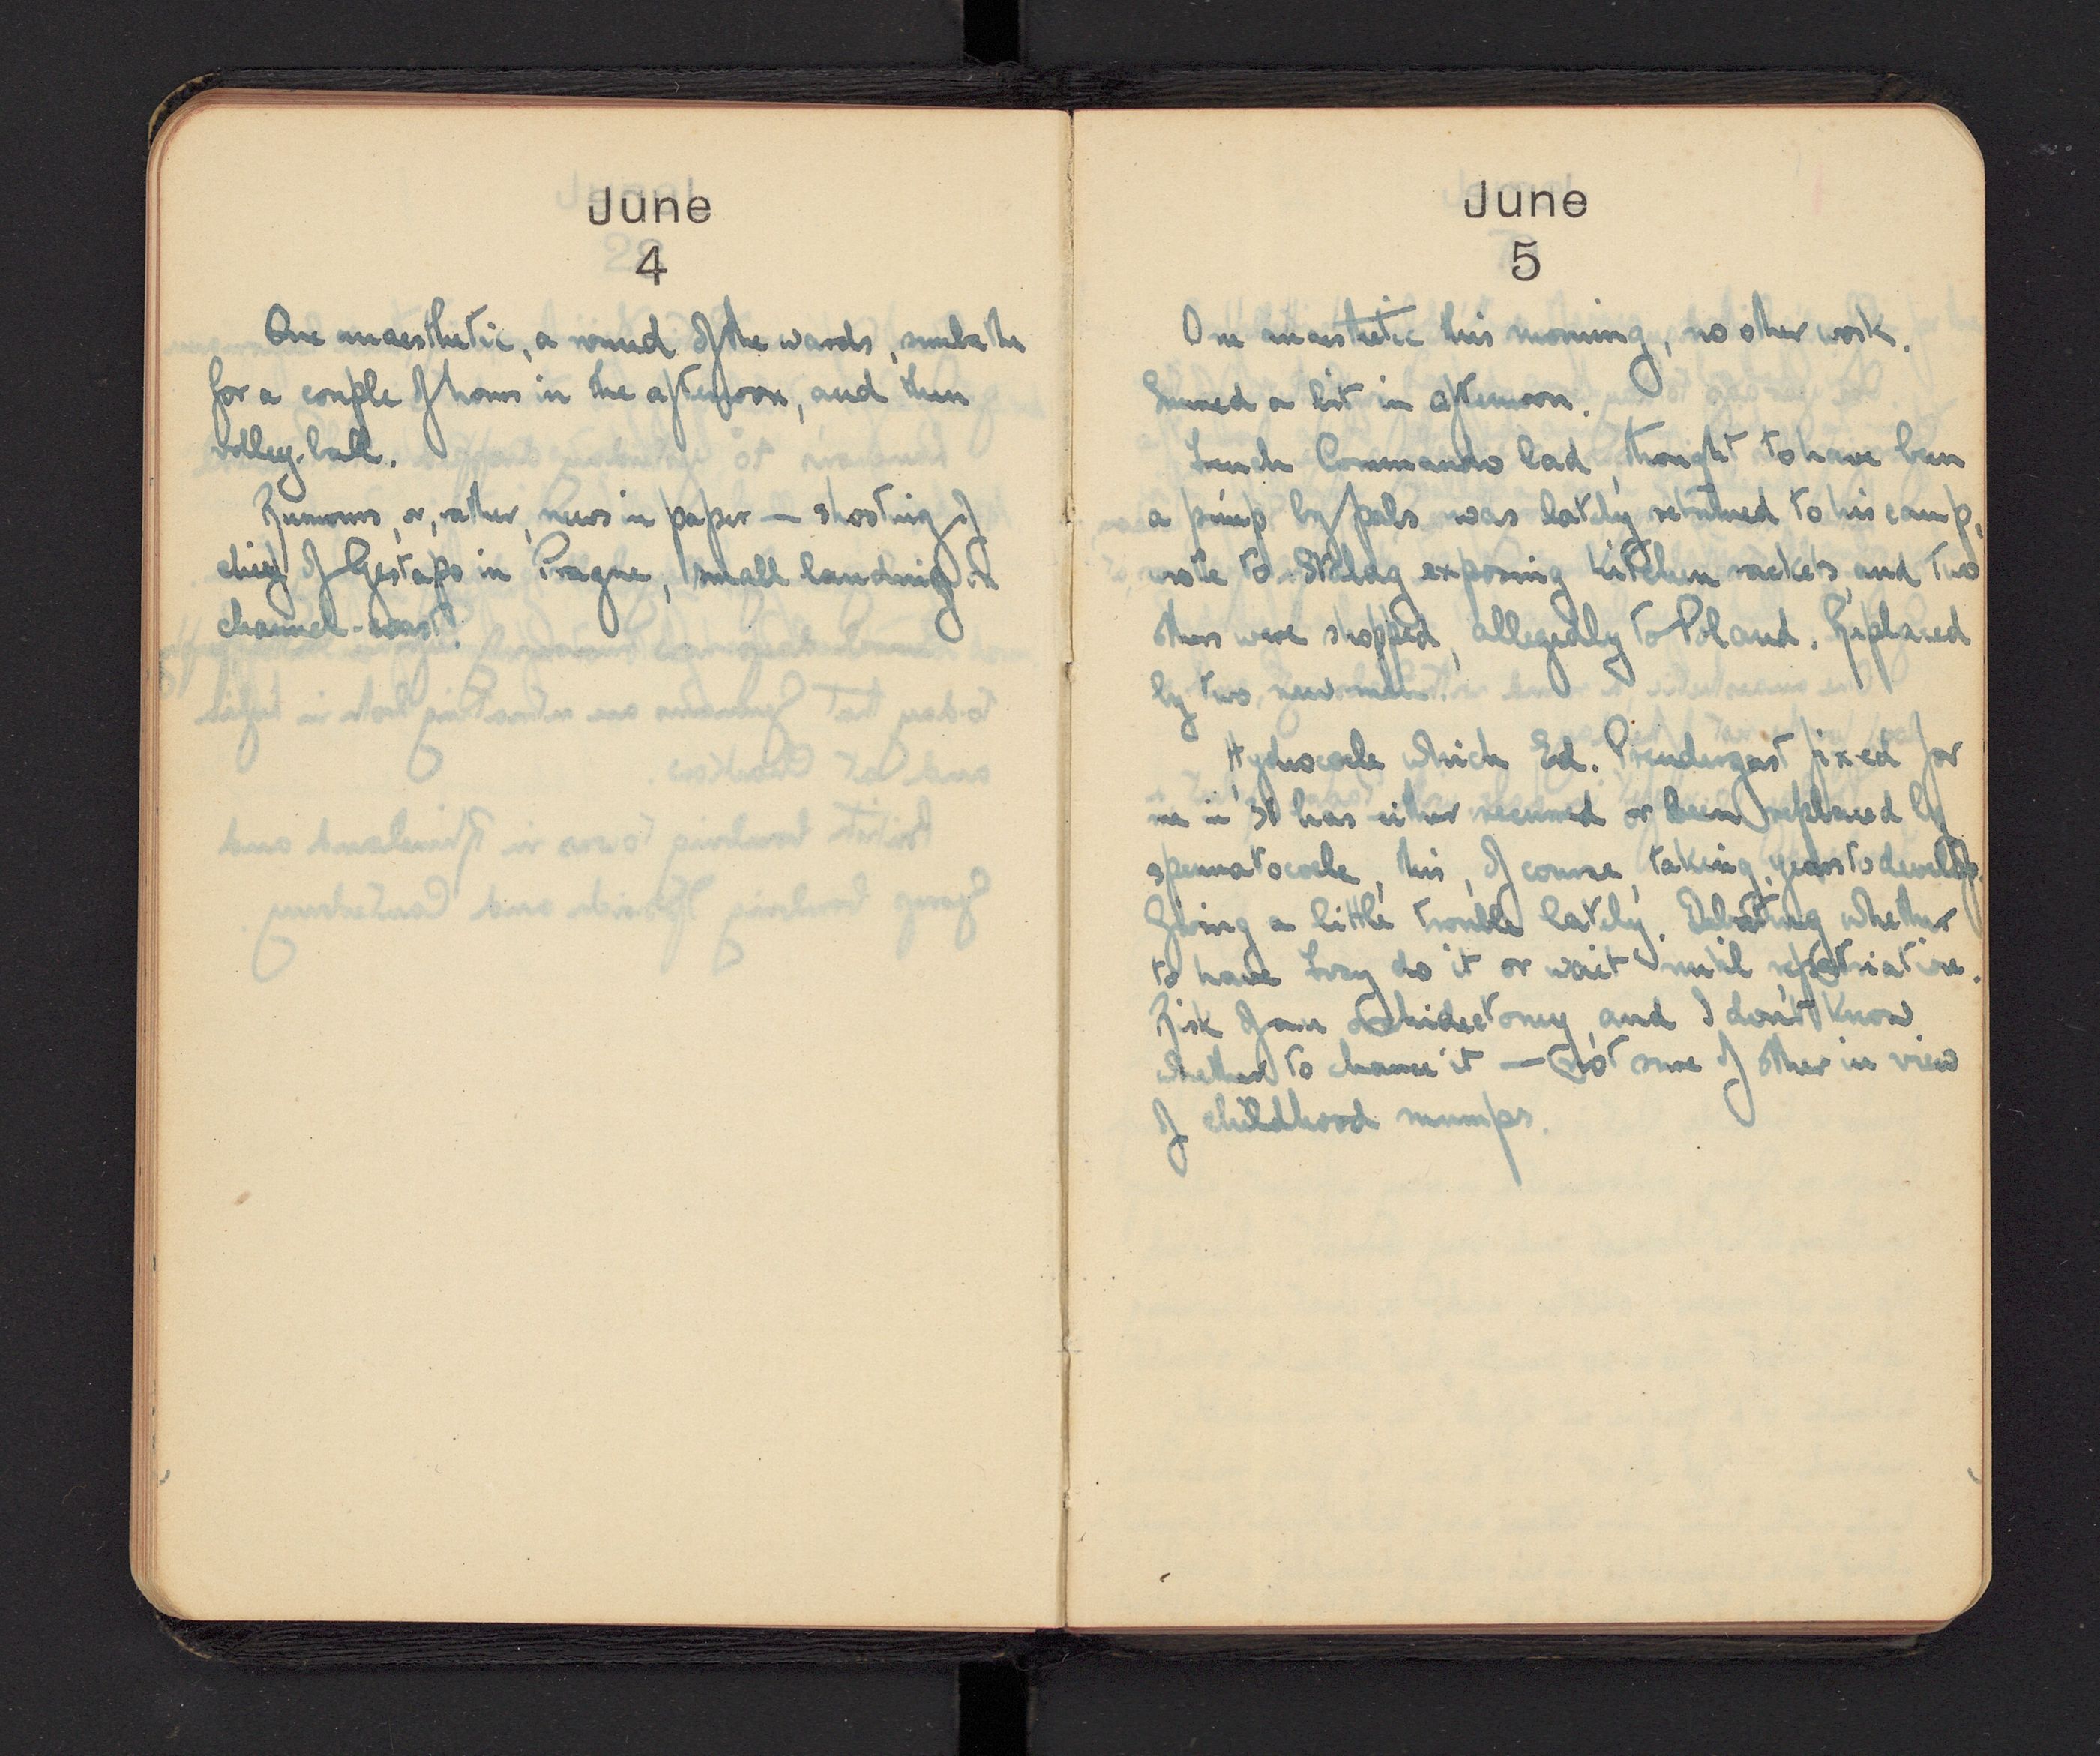 June
4
One anaesthetic, a round of the wards, sunbathe
for a couple of hours in the afternoon, and then
volley-ball.
Rumours, or, rather, news in paper — shooting of
chief of Gestapo in Prague, small landing on
channel-coast.
June
5
One anaesthetic this morning, no other work.
Sunned a bit in afternoon.
French Commando lad, thought to have been
a pimp by pals was lately returned to his camp,
wrote to Stalag exposing kitchen rackets, and two
others were shopped, allegedly to Poland. Replaced
by two new men.
Hydrocele which Ed. Prendergast fixed for
me in '31 has either recurred or been replaced by
spermatocele, this, of course, taking years to develop.
Giving a little trouble lately. Debating whether
to have do it or wait until repatriation.
Risk of an orchidectomy, and I don't know
whether to chance it — not sure of other in view
of childhood mumps.